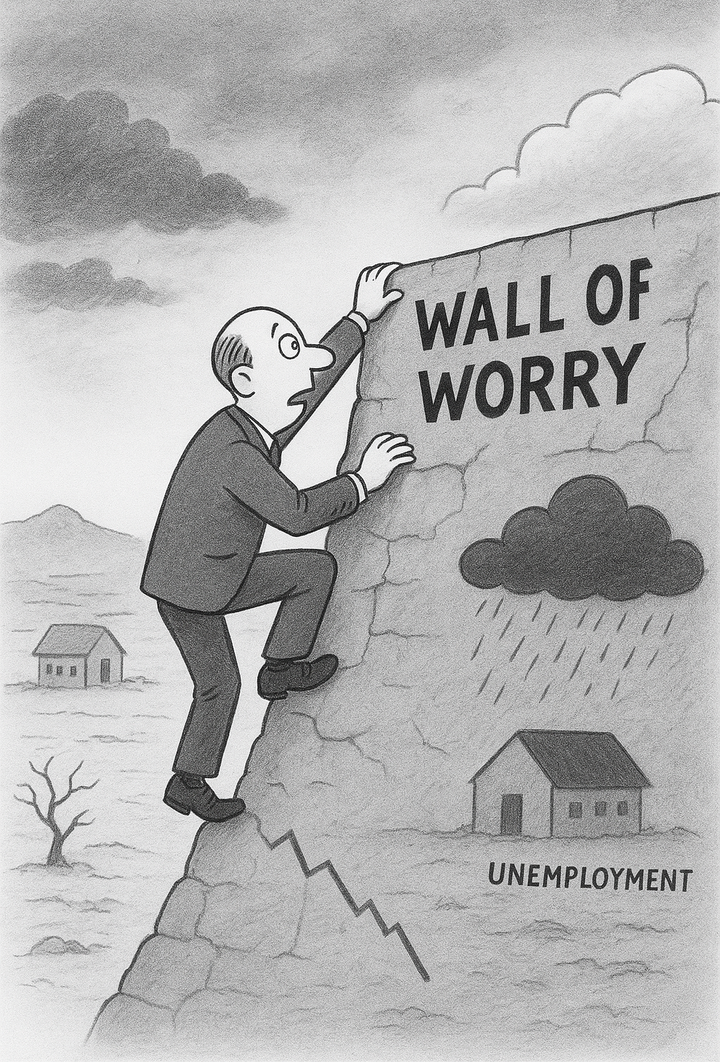 WALL OF
WORRY
UNEMPLOYMENT